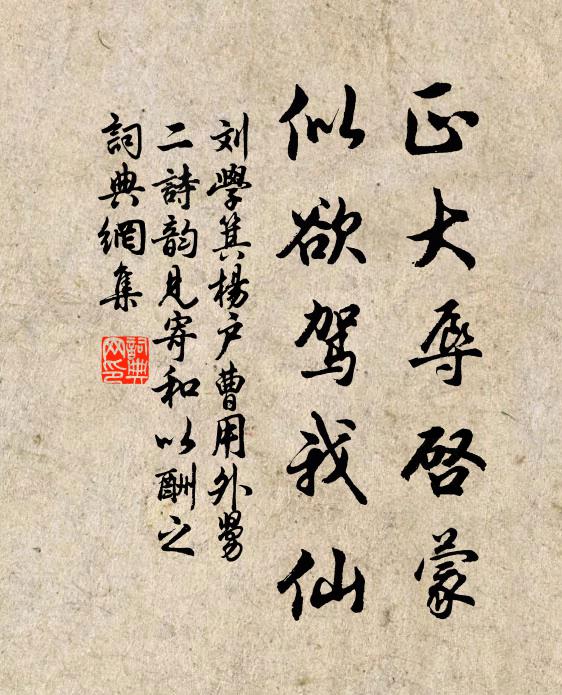 正大辱启蒙
似欲驾我仙
刘學箕楊户曹用外舅
二詩韵见寄和以酬之
詞典網集
詞典网印